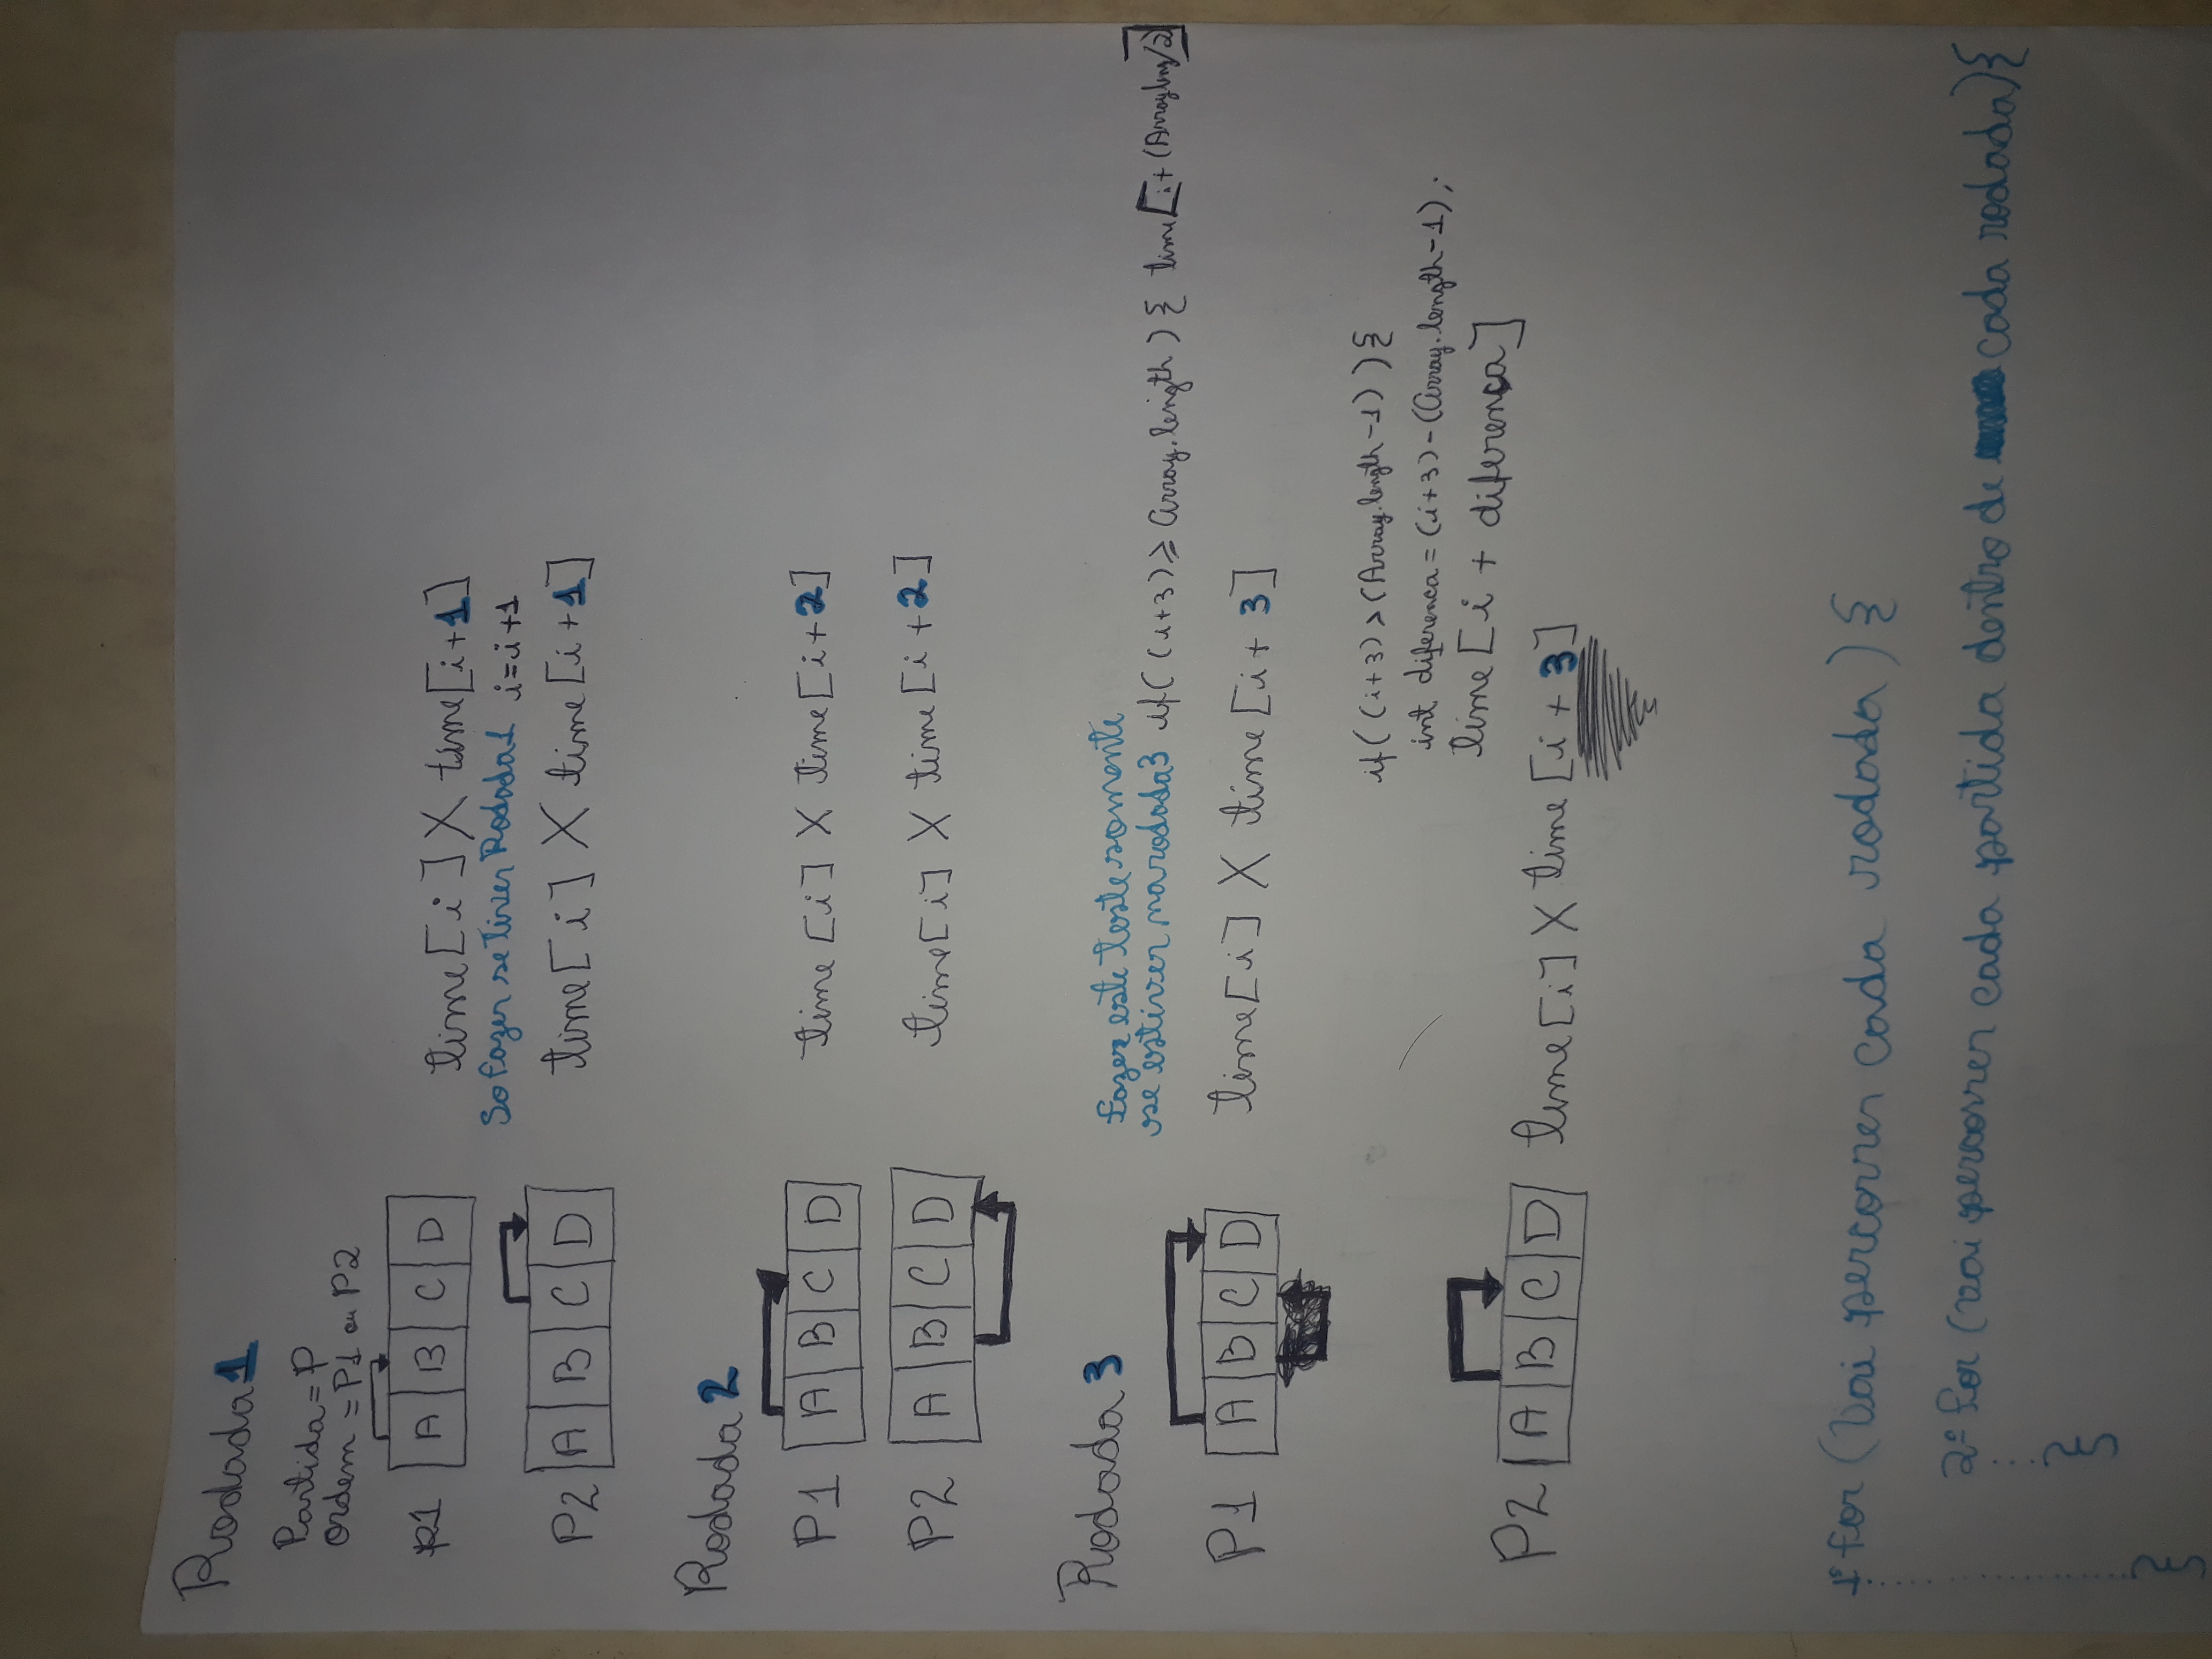 Rodada 1
Partida = P
Ordem = P1 ou P2
P1 A B C D time[i] X time[i+1]
So fazer se tiver Rodada1 i=i+1
P2 A B C D time[i] X time[i+1]
Rodada 2
P1 A B C D time[i] X time[i+2]
P2 A B C D time[i] X time[i+2]
Rodada 3
fazer este teste somente
se estiver na rodada3 if((i+3)≥Array.length){ time[i+(Arrayleng/2)]
P1 A B C D time[i] X time[i+3]
if((i+3)>(Array.length-1)){
int diferenca=(i+3)-(Array.length-1);
time[i+diferença]
P2 A B C D time[i] X time[i+3]
1º for (Vai percorrer cada rodada){
2º for (vai percorrer cada partida dentro de cada rodada){
}
}